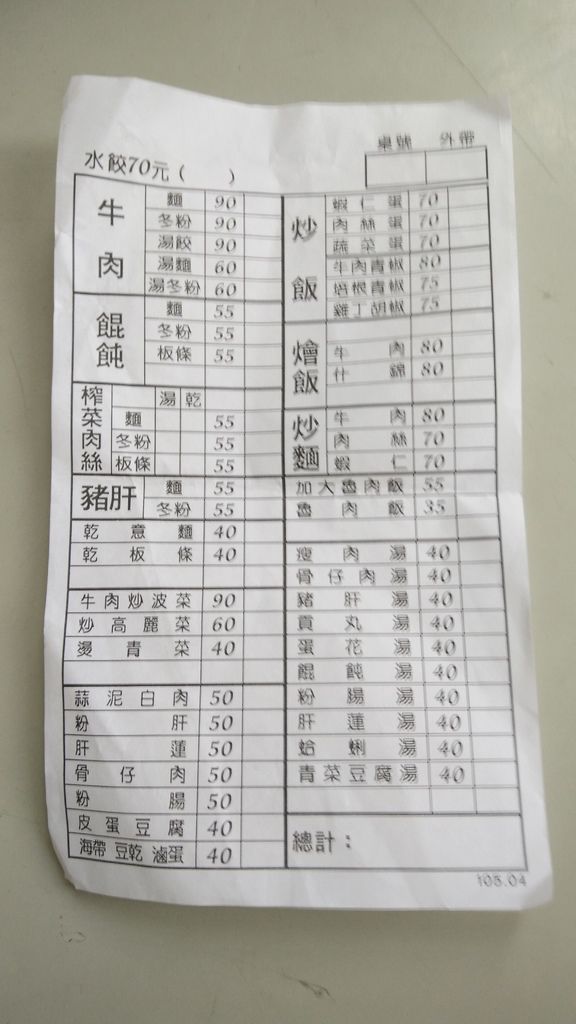 桌號 外帶
水餃70元( )
牛肉
麵 90
冬粉 90
湯餃 90
湯麵 60
湯冬粉 60
餛飩
麵 55
冬粉 55
板條 55
榨菜肉絲
湯 乾
麵 55
冬粉 55
板條 55
豬肝
麵 55
冬粉 55
乾意麵 40
乾板條 40
牛肉炒波菜 90
炒高麗菜 60
燙青菜 40
蒜泥白肉 50
粉肝 50
肝蓮 50
骨仔肉 50
粉腸 50
皮蛋豆腐 40
海帶 豆乾 滷蛋 40
炒飯
蝦仁蛋 70
肉絲蛋 70
蔬菜蛋 70
牛肉青椒 80
培根青椒 75
雞丁胡椒 75
燴飯
牛肉 80
什錦 80
炒麵
牛肉 80
肉絲 70
蝦仁 70
加大魯肉飯 55
魯肉飯 35
瘦肉湯 40
骨仔肉湯 40
豬肝湯 40
貢丸湯 40
蛋花湯 40
餛飩湯 40
粉腸湯 40
肝蓮湯 40
蛤蜊湯 40
青菜豆腐湯 40
總計：
105.04